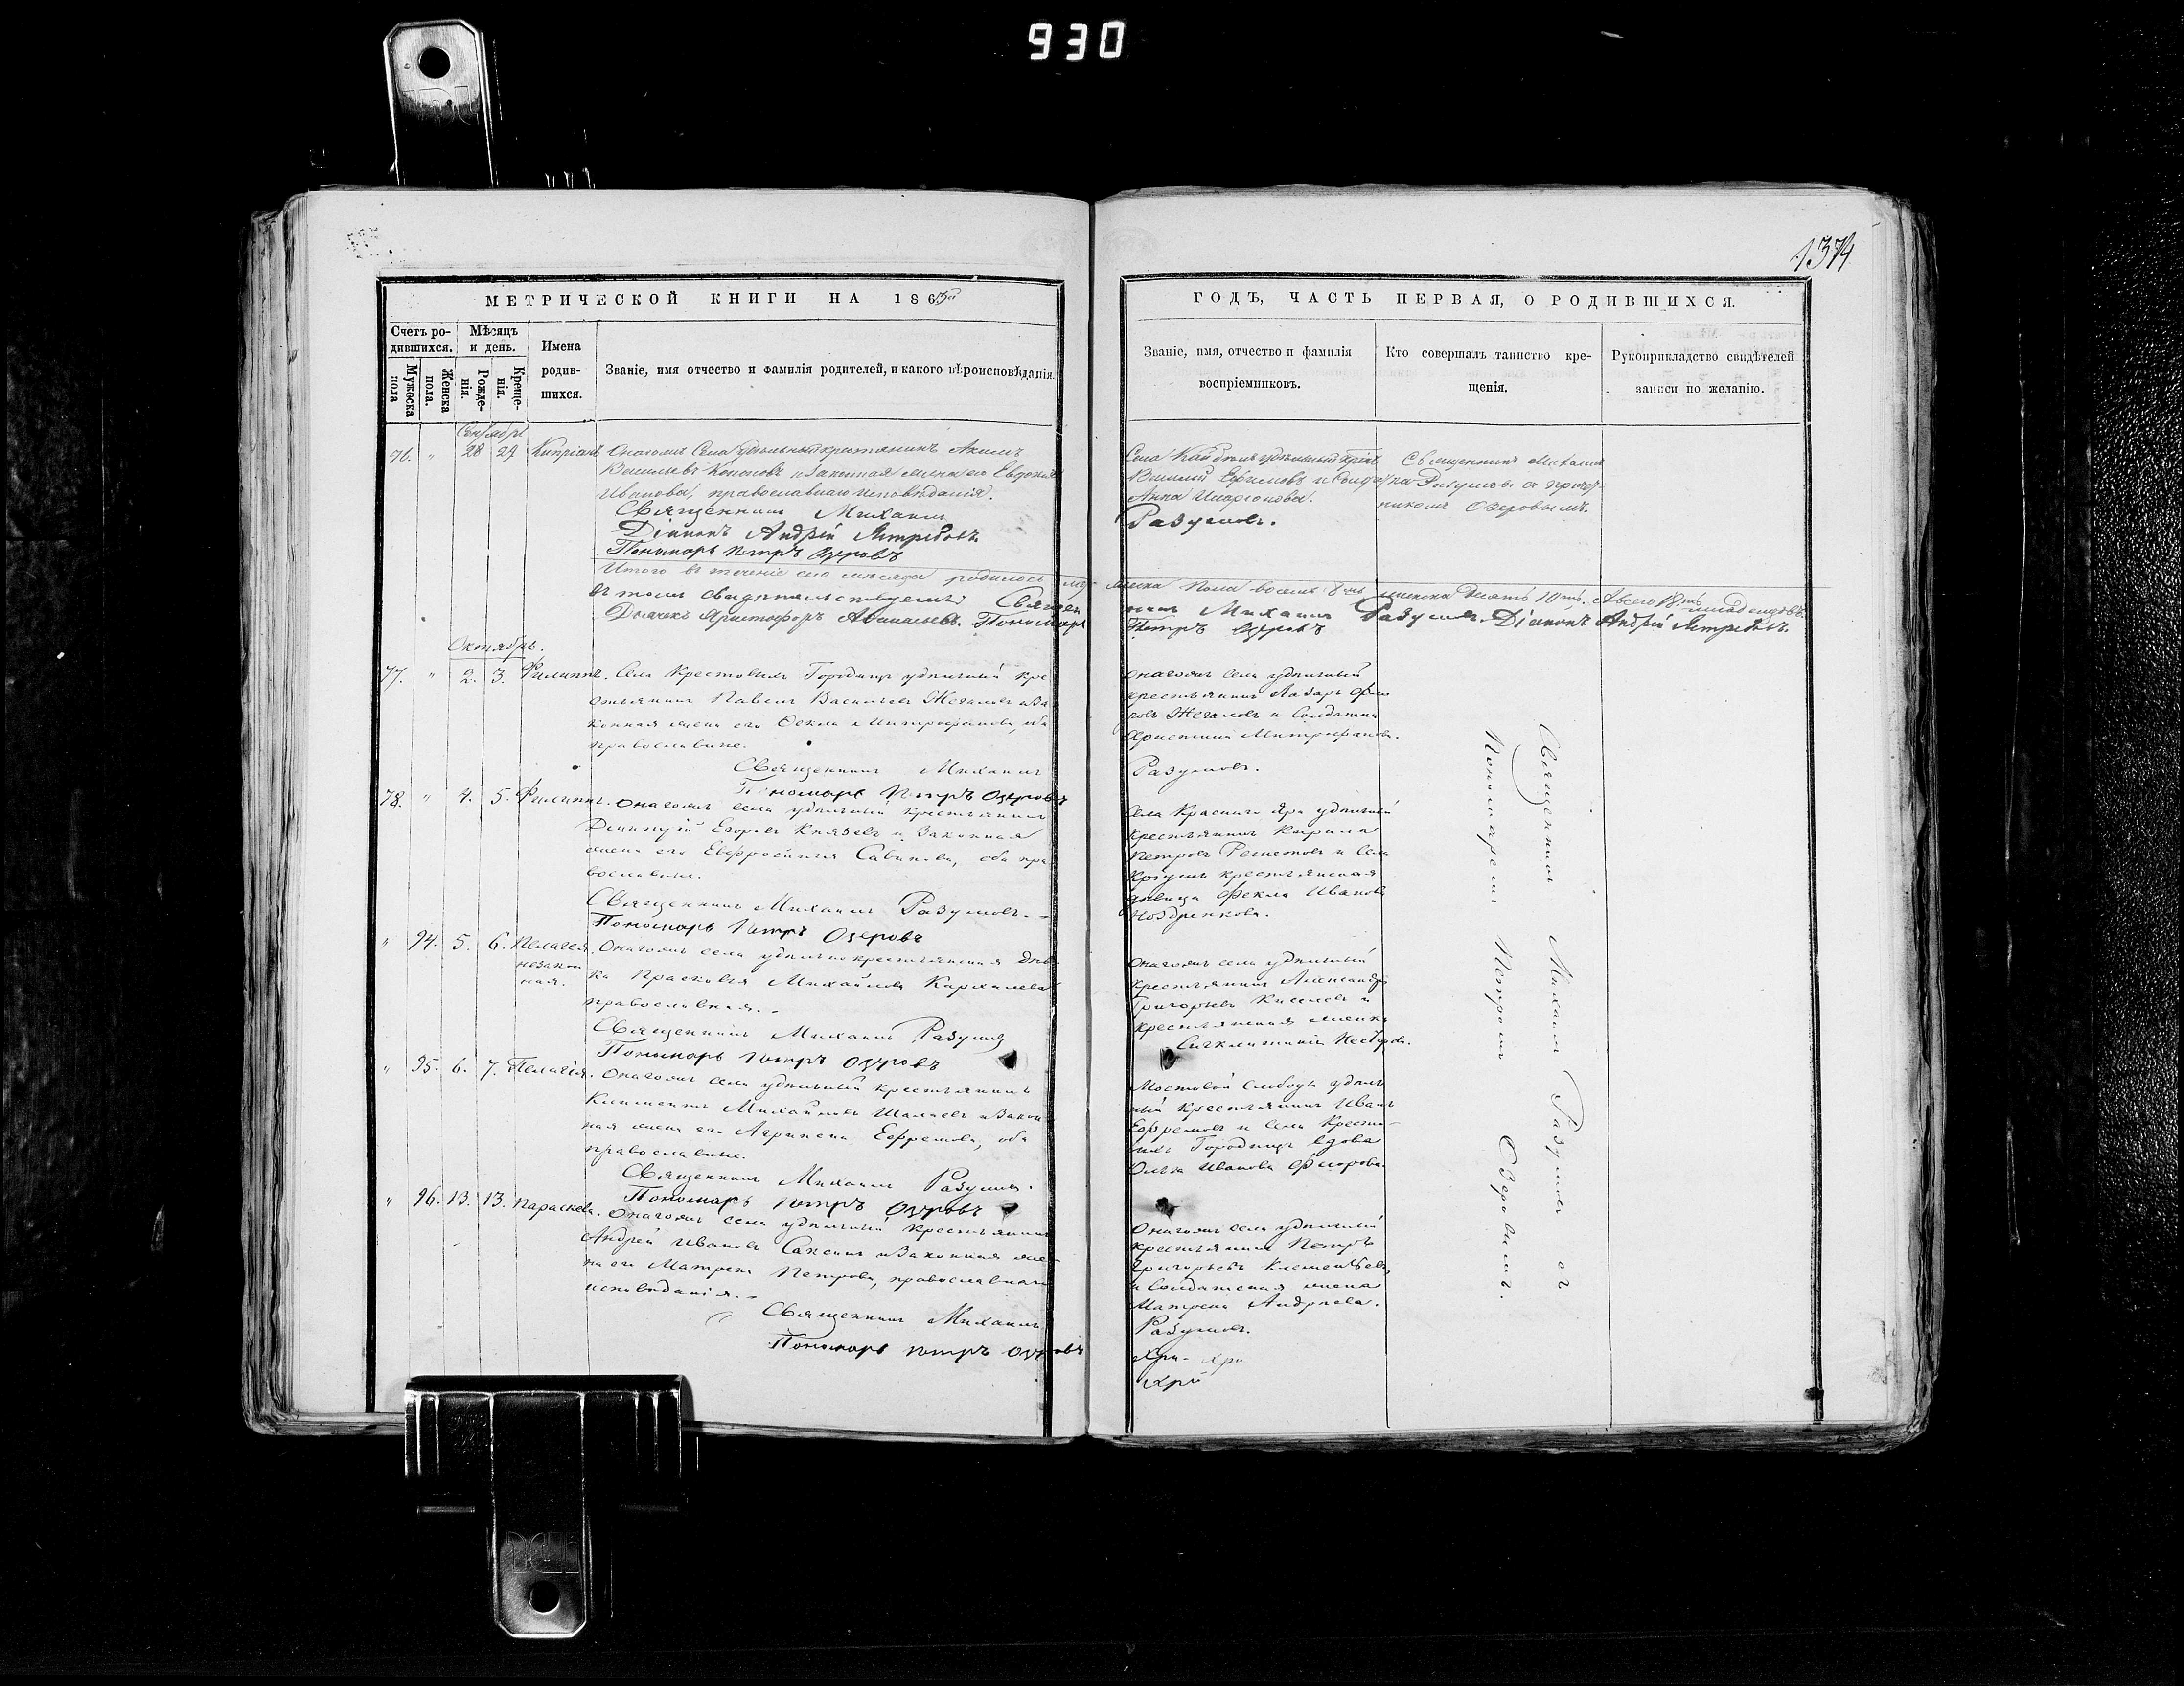 930
1374
МЕТРИЧЕСКОЙ КНИГИ НА 1863й
Счетъ родившихся.
Мужеска пола
Женска пола.
Мѣсяцъ и день.
Рожденія.
Крещенія.
Имена родившихся.
Званіе, имя отчество и фамилія родителей, и какого вѣроисповѣданія.
Сентябрь
76. " 28 29 Кипріанъ
Онагожъ Села удѣльный крестьянинъ Акимъ
Васильевъ Кононовъ и Законная жена его Евдокія
Иванова, православнаго исповѣданія.
Священникъ Михаилъ
Діаконъ Андрей Ястребовъ.
Пономарь Петръ Озеровъ
Итого въ теченіе сего мѣсяца родилось му
въ томъ свидѣтельствуемъ: Священ
Дьячекъ Аристофоръ Пономарь
Октябрь.
77. " 2. 3. Филиппъ.
Села Крестовыхъ Городищъ удѣльный кре
стьянинъ Павелъ Васильевъ Жегаловъ и За
конная жена его Ѳекла Митрофанова, оба
православные.
Священникъ Михаилъ
Пономарь Петръ Озеровъ
78. " 4. 5. Филиппъ.
Онагожъ села удѣльный крестьянинъ
Егоровъ Князевъ и Законная
жена его Евфросинія Савинова, оба пра
вославные.
Священникъ Михаилъ Разумовъ.
Пономарь Петръ Озеровъ
" 94. 5. 6. Пелагея
незакон
ная.
Онагожъ села удѣльнокрестьянская дѣв
ка Прасковья Михайлова
православная.
Священникъ Михаилъ Разумов
Пономарь Петръ Озеровъ
" 95. 6. 7. Пелагія.
Онагожъ села удѣльный крестьянинъ
Климентъ Михайловъ и Закон
ная жена его Агрипена Ефремова, оба
православные.
Священникъ Михаилъ Разумовъ.
Пономарь Петръ Озеровъ
" 96. 13. 13. Параскева.
Онагожъ села удѣльный крестьянинъ
Андрей Ивановъ и Законная же
на его Матрена Петрова, православнаго
исповѣданія.
Священникъ Михаилъ
Пономарь Петръ Озеровъ
ГОДЪ, ЧАСТЬ ПЕРВАЯ, О РОДИВШИХСЯ.
Званіе, имя, отчество и фамилія воспріемниковъ.
Кто совершалъ таинство крещенія.
Рукоприкладство свидѣтелей записи по желанію.
Села удѣльный
Василій Ефимовъ и
Анна
Разумовъ.
Священникъ Михаилъ
Разумовъ съ
Озеровымъ.
жеска пола восемь 8мь женска десять 10ть. А всего 18ть младенцовъ.
никъ Михаилъ Разумовъ. Діаконъ Андрей Ястребовъ.
Петръ Озеровъ
онагожъ села удѣльный
крестьянинъ Лазарь
Жегаловъ и Солдатка
Христина Митрофанова.
Разумовъ.
Села Краснаго Яра удѣльный
крестьянинъ Кирила
Петровъ Решетовъ и Села
крестьянская
дѣвица Фекла Иванова
Ноздренкова.
Онагожъ села удѣльный
крестьянинъ Александръ
Григорьевъ Киселевъ и
крестьянская женка
Мостовой Слободы удѣль
ный крестьянинъ Иванъ
Ефремовъ и Села Кресто-
выхъ Городищъ вдова
Ольга Иванова
Онагожъ села удѣльный
крестьянинъ Петръ
Григорьевъ
и Солдатская жена
Матрена Андреева.
Разумовъ.
Хри- Хри
Хри
Священникъ Михаилъ Разумовъ съ
Пономаремъ Петромъ Озеровымъ.